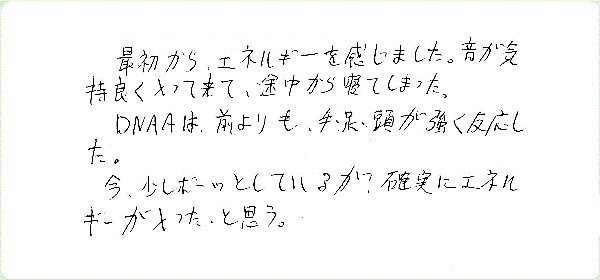 最初から、エネルギーを感じました。音が気
持良くなって来て、途中から寝てしまった。
DNAAは、前よりも、手、足、頭が強く反応し
た。
今、少しボーッとしているが、確実にエネル
ギーが入った、と思う。